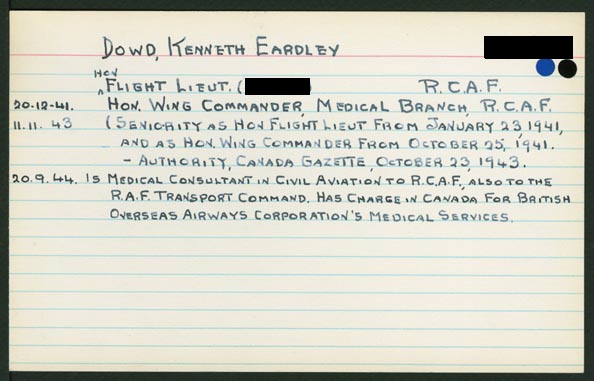 DOWD, KENNETH EARDLEY
HON
^FLIGHT LIEUT. ( ) R.C.A.F.
20-12-41. HON. WING COMMANDER, MEDICAL BRANCH, R.C.A.F.
11.11.43 (SENIORITY AS HON FLIGHT LIEUT FROM JANUARY 23, 1941,
AND AS HON. WING COMMANDER FROM OCTOBER 25, 1941.
- AUTHORITY, CANADA GAZETTE, OCTOBER 23, 1943.
20.9.44. IS MEDICAL CONSULTANT IN CIVIL AVIATION TO R.C.A.F., ALSO TO THE
R.A.F. TRANSPORT COMMAND. HAS CHARGE IN CANADA FOR BRITISH
OVERSEAS AIRWAYS CORPORATION'S MEDICAL SERVICES.